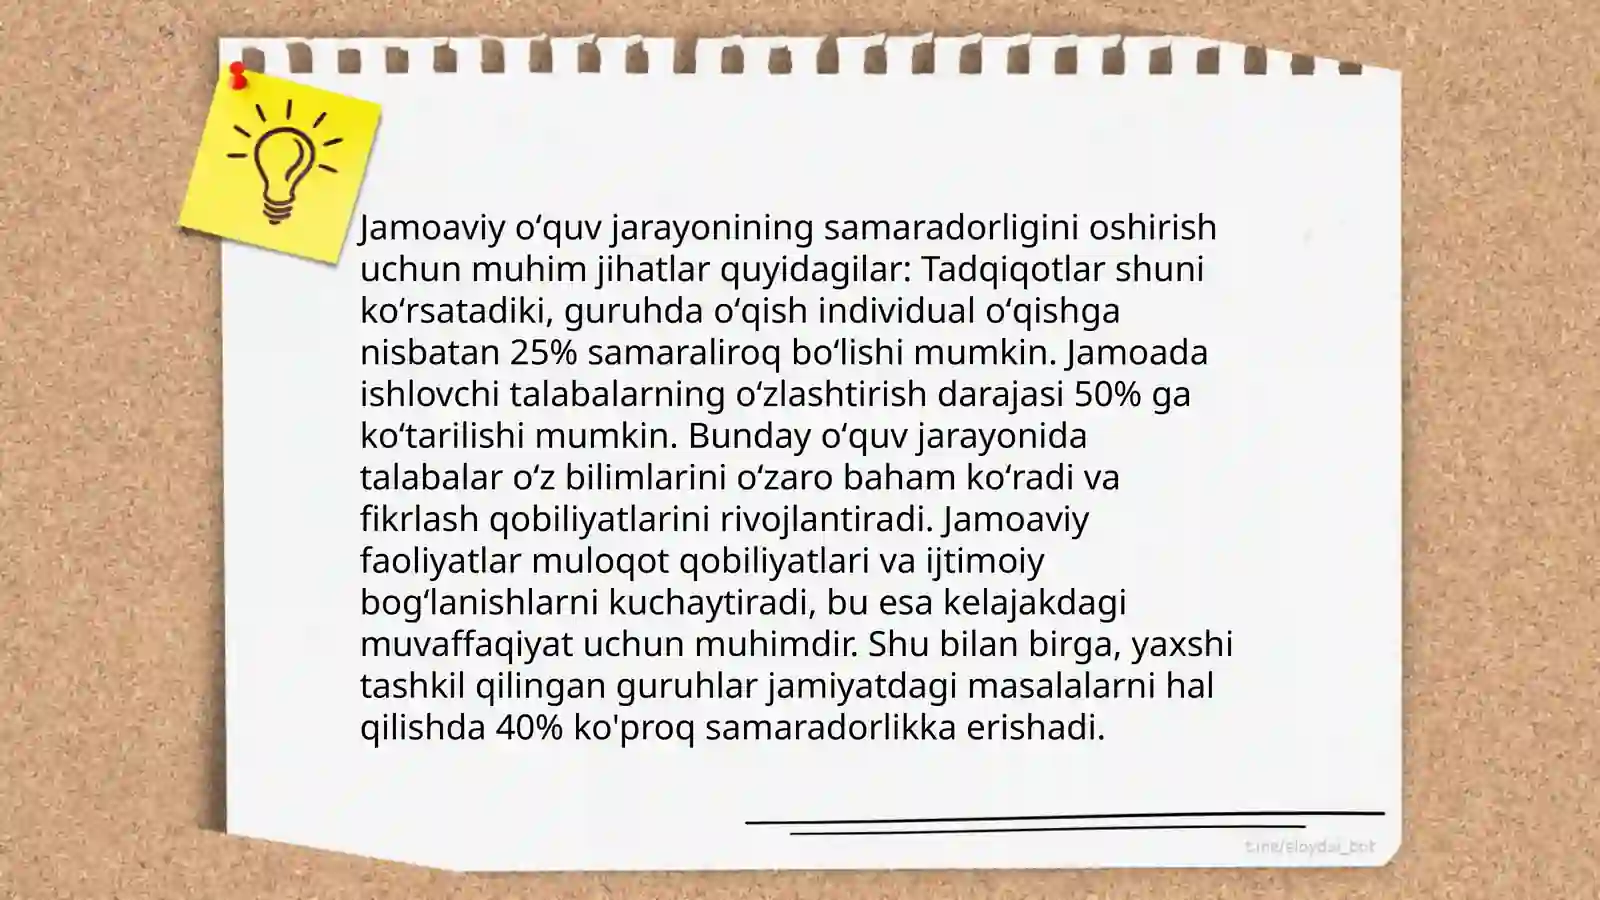 Jamoaviy oʻquv jarayonining samaradorligini oshirish
uchun muhim jihatlar quyidagilar: Tadqiqotlar shuni
koʻrsatadiki, guruhda oʻqish individual oʻqishga
nisbatan 25% samaraliroq boʻlishi mumkin. Jamoada
ishlovchi talabalarning oʻzlashtirish darajasi 50% ga
koʻtarilishi mumkin. Bunday oʻquv jarayonida
talabalar oʻz bilimlarini oʻzaro baham koʻradi va
fikrlash qobiliyatlarini rivojlantiradi. Jamoaviy
faoliyatlar muloqot qobiliyatlari va ijtimoiy
bogʻlanishlarni kuchaytiradi, bu esa kelajakdagi
muvaffaqiyat uchun muhimdir. Shu bilan birga, yaxshi
tashkil qilingan guruhlar jamiyatdagi masalalarni hal
qilishda 40% ko'proq samaradorlikka erishadi.